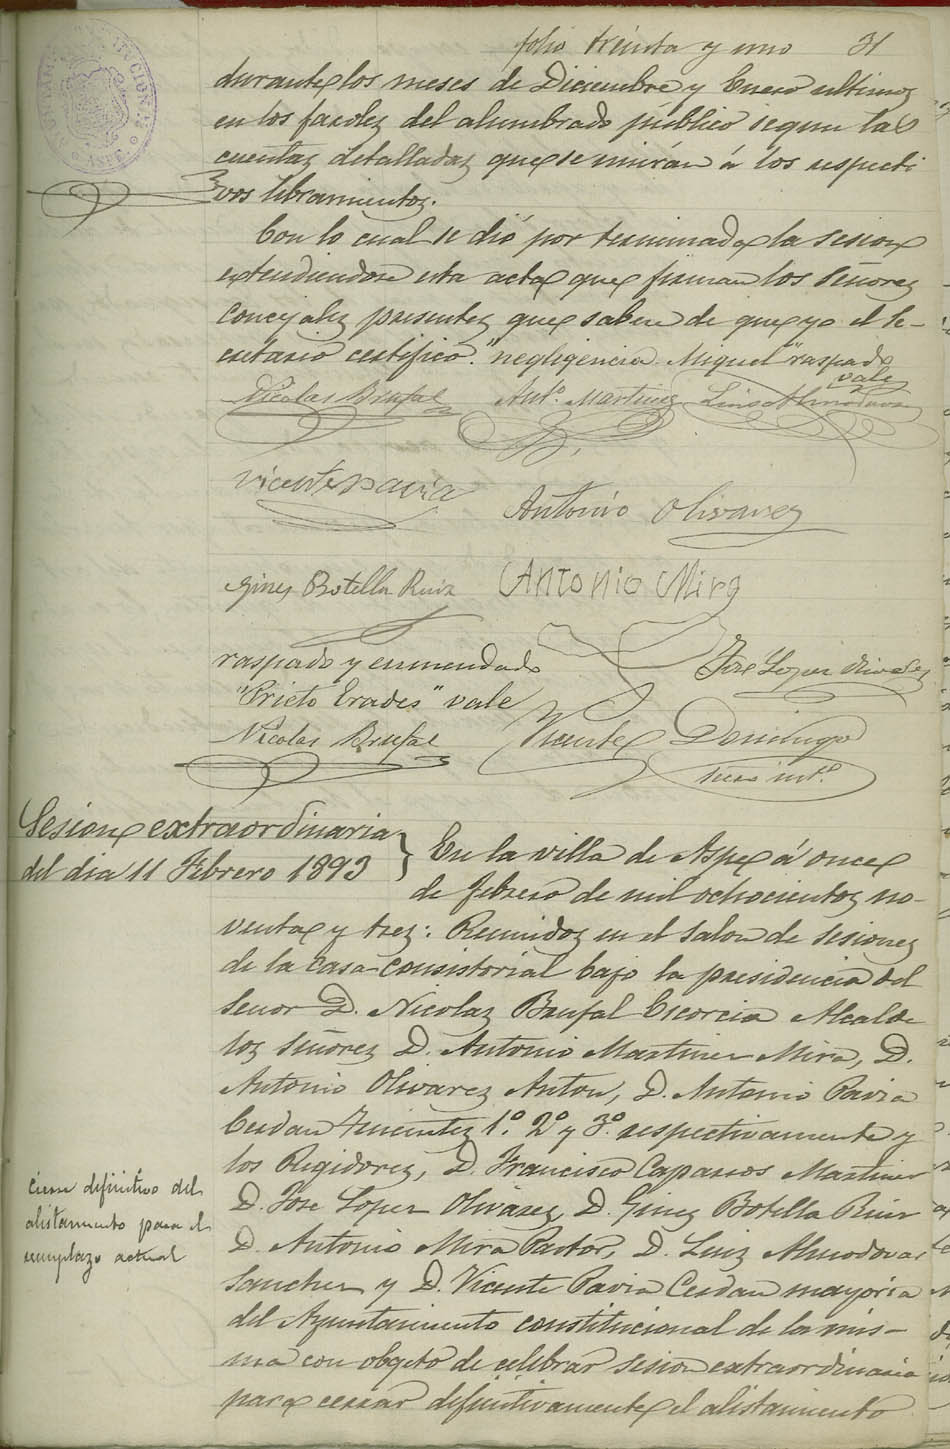 folio treinta y uno 31
durante los meses de Diciembre y Enero ultimos
en los faroles del alumbrado público segun las
cuentas detalladas que se unirán á los respecti-
vos libramientos.
Con lo cual se dió por terminada la sesion
extendiendose esta acta que firman los señores
Concejales presentes que saben de que yo el Se-
cretario certifico. "negligencia. Miguel" raspado
vale
Nicolas Brufal Antº. Martinez Luis Almodovar
Vicente Pavia
Antonio Olivares
Gines Botella Ruiz Antonio Mira
raspado y enmendado José Lopez Olivares
"Prieto Erades" vale
Nicolas Brufal Vicente Domingo
Srio intº.
Sesion extraordinaria
del dia 11 Febrero 1893
En la villa de Aspe á once
de febrero de mil ochocientos no-
venta y tres: Reunidos en el salon de sesiones
de la casa-consistorial bajo la presidencia del
Señor D. Nicolas Brufal Escorcia Alcalde
los señores D. Antonio Martinez Mira, D.
Antonio Olivares Anton, D. Antonio Pavia
Cerdan Tenientes 1º. 2º y 3º. respectivamente y
los Regidores, D. Francisco Caparros Martinez
D. Jose Lopez Olivares, D. Gines Botella Ruiz
D. Antonio Mira Pastor, D. Luis Almodovar
Sanchez y D. Vicente Pavia Cerdan mayoria
del Ayuntamiento constitucional de la mis-
ma con objeto de celebrar sesion extraordinaria
para cerrar definitivamente el alistamiento
Cierre definitivo del
alistamiento para el
reemplazo actual